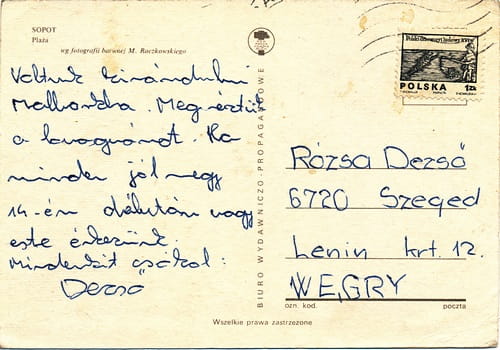 SOPOT
Plaża
wg fotografii barwnej M. Raczkowskiego
Voltunk kirándulni
Malborkba. Megnéztük
a lovagvárat. Ha
minden jól megy
14-én délután vagy
este érkezünk.
Mindenkit csókol:
Dezső
BIURO WYDAWNICZO-PROPAGANDOWE
POLSKA
1zł
Rózsa Dezső
6720 Szeged
Lenin krt. 12.
WĘGRY
ozn. kod. poczta
Wszelkie prawa zastrzeżone